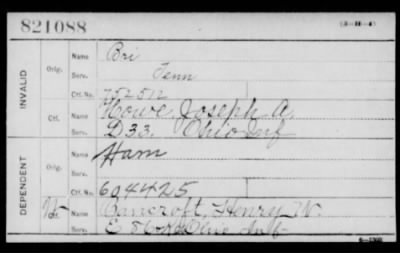 821088
INVALID
Orig.
Name Bri
Serv. Tenn
Ctf. No. 752512
Ctf.
Name Howe, Joseph A.
Serv. D 33. Ohio Inf
DEPENDENT
Orig.
Name Ham
Serv.
Ctf. No. 604425
W
Ctf.
Name Bancroft, Henry W.
Serv. E 86 Ohio Inf